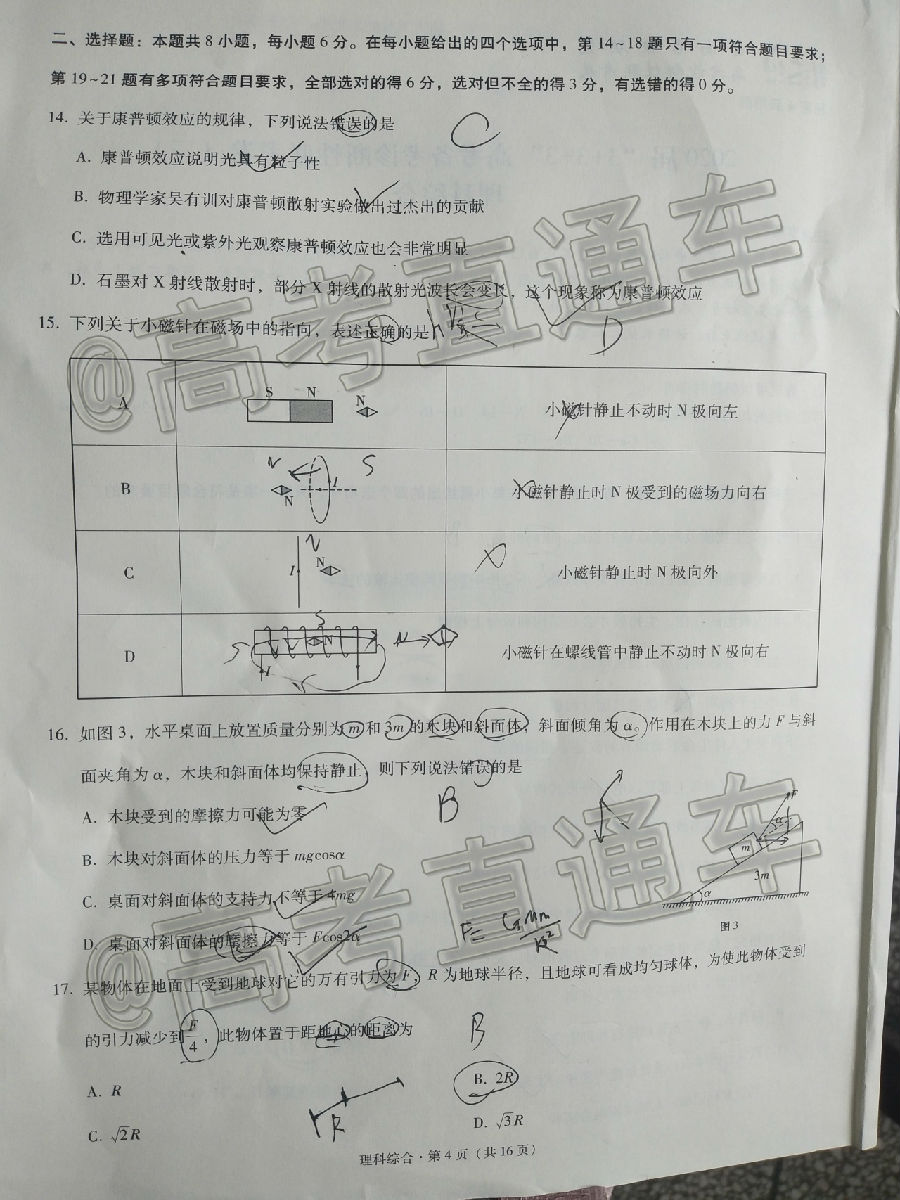 二、选择题：本题共8小题，每小题6分。在每小题给出的四个选项中，第14~18题只有一项符合题目要求；
第19~21题有多项符合题目要求，全部选对的得6分，选对但不全的得3分，有选错的得0分。
14. 关于康普顿效应的规律，下列说法错误的是 C
A. 康普顿效应说明光具有粒子性
B. 物理学家吴有训对康普顿散射实验做出过杰出的贡献
C. 选用可见光或紫外光观察康普顿效应也会非常明显
D. 石墨对X射线散射时，部分X射线的散射光波长会变长，这个现象称为康普顿效应
15. 下列关于小磁针在磁场中的指向，表述正确的是 D
A S N N 小磁针静止不动时N极向左
B N N I S 小磁针静止时N极受到的磁场力向右
C I N N 小磁针静止时N极向外
D S S N I N 小磁针在螺线管中静止不动时N极向右
16. 如图3，水平桌面上放置质量分别为m和3m的木块和斜面体，斜面倾角为α。作用在木块上的力F与斜
面夹角为α，木块和斜面体均保持静止，则下列说法错误的是
B
A. 木块受到的摩擦力可能为零
B. 木块对斜面体的压力等于mgcosα
C. 桌面对斜面体的支持力不等于4mg
D. 桌面对斜面体的摩擦力等于Fcos2α
F α m 3m α
图3
F= GMm/R²
17. 某物体在地面上受到地球对它的万有引力为F，R为地球半径，且地球可看成均匀球体，为使此物体受到
的引力减少到F/4，此物体置于距地心的距离为 B
A. R B. 2R
R
C. √2R D. √3R
理科综合·第4页（共16页）
@高考直通车
@高考直通车